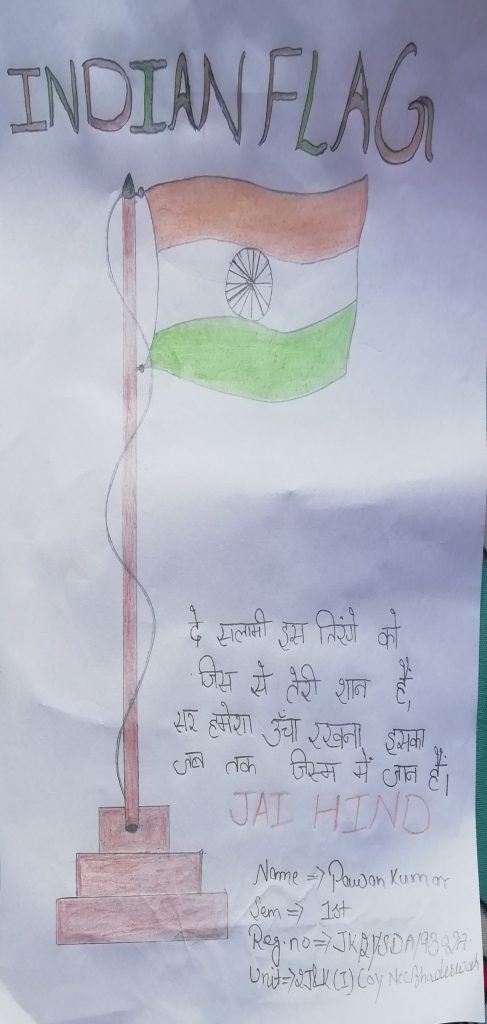 INDIAN FLAG
दे सलामी इस तिरंगे को
जिस से तेरी शान है,
सर हमेशा उँचा रखना इसका
जब तक जिस्म में जान है।
JAI HIND
Name => Pawan Kumar
Sem => 1st
Reg. no =>
Unit => Coy Ncc Bhaderwah